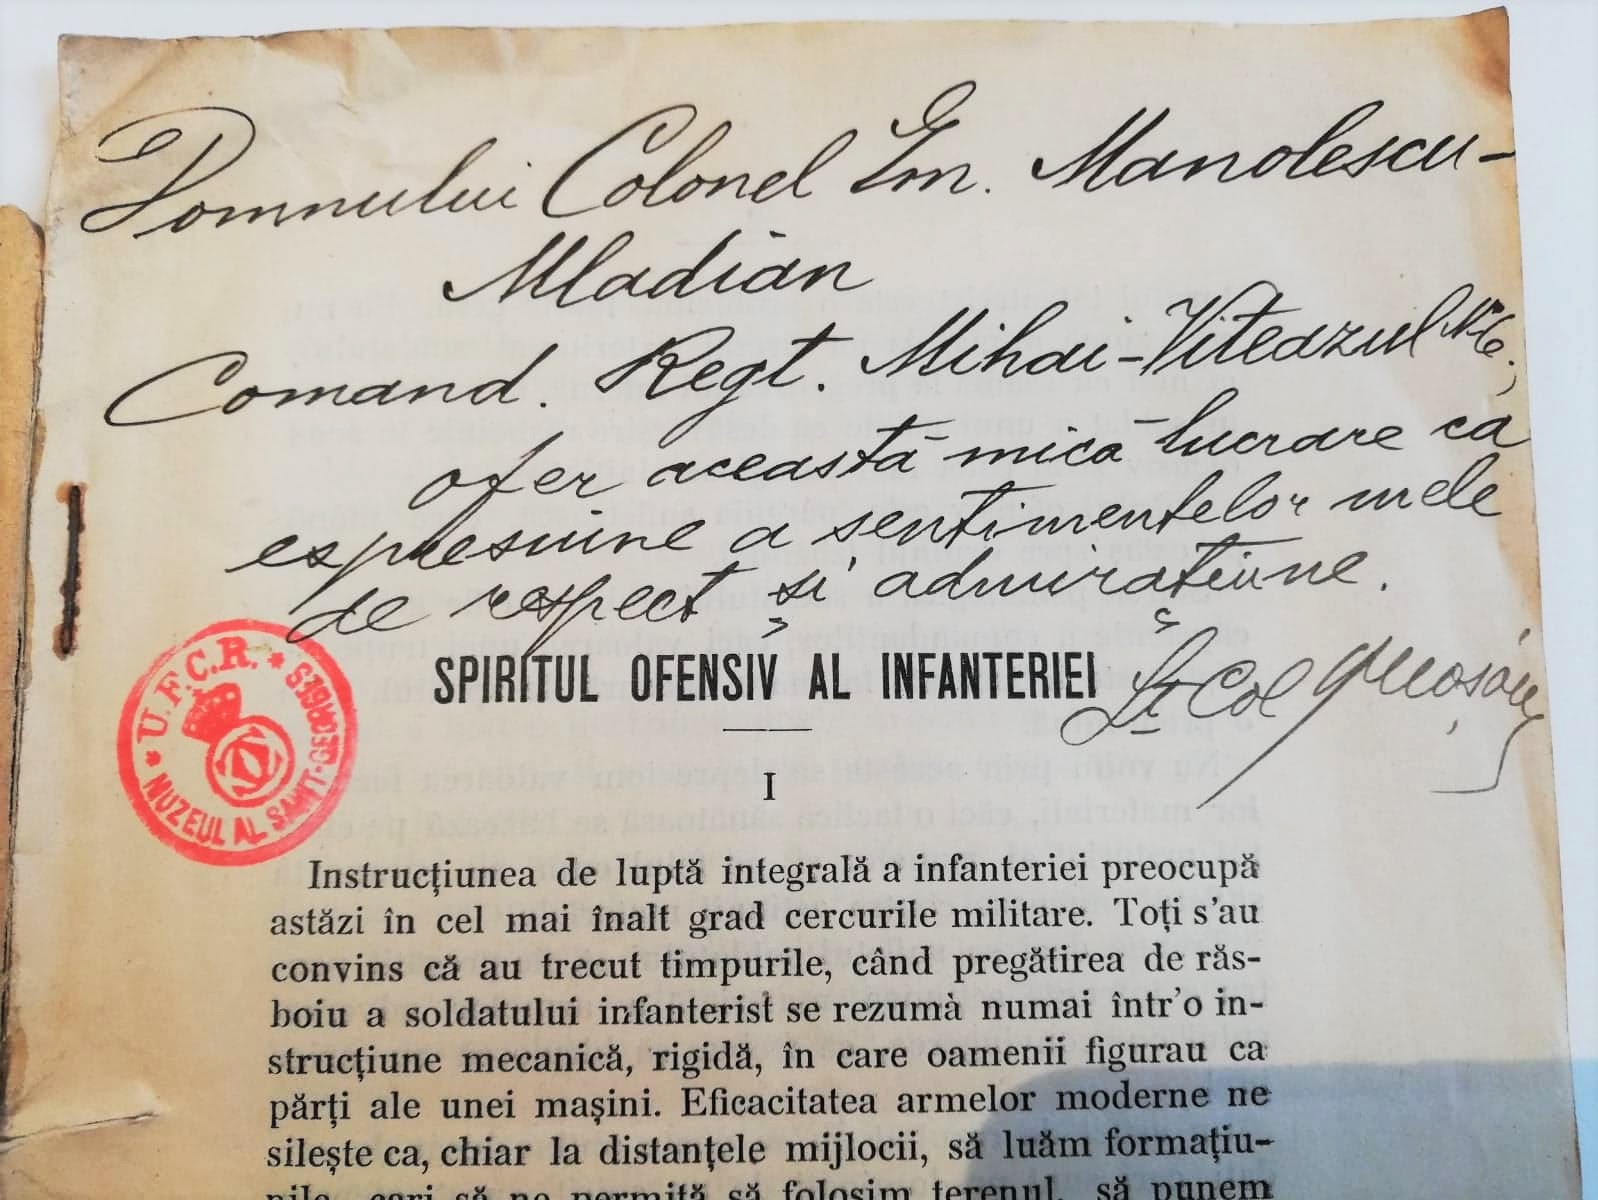 Domnului Colonel Em. Manolescu-
Mladian
Comand. Regt. Mihai-Viteazul No 6.,
ofer această mică lucrare ca
espresiune a sentimentelor mele
de respect și admirațiune.
Lt Col
SPIRITUL OFENSIV AL INFANTERIEI
* U.F.C.R. * MUZEUL AL SAINT-GEORGES
I
Instrucțiunea de luptă integrală a infanteriei preocupă
astăzi în cel mai înalt grad cercurile militare. Toți s'au
convins că au trecut timpurile, când pregătirea de răs-
boiu a soldatului infanterist se rezumà numai într'o in-
strucțiune mecanică, rigidă, în care oamenii figurau ca
părți ale unei mașini. Eficacitatea armelor moderne ne
silește ca, chiar la distanțele mijlocii, să luăm formațiu-
nile, cari să ne permită să folosim terenul, să punem